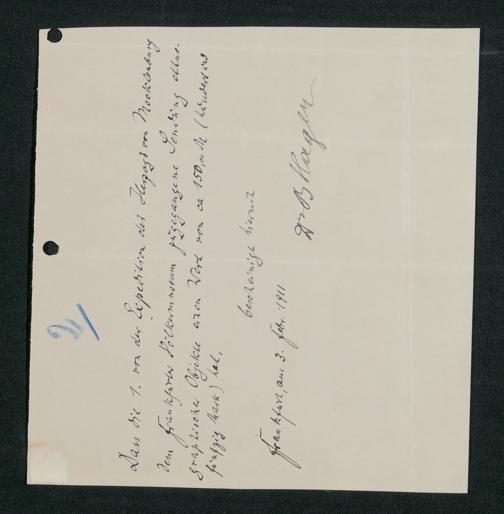 Dass die 1. von der Expedition des Herzogs von Mecklenburg
dem Frankfurter Völkermuseum zugegangene Sendung ethno-
graphischer Objekte einen Wert von ca 150,00 M (hundert und
fünfzig Mark) hat,
bescheinige hiermit
Frankfurt, am 3. Febr. 1911
Dr B Hagen